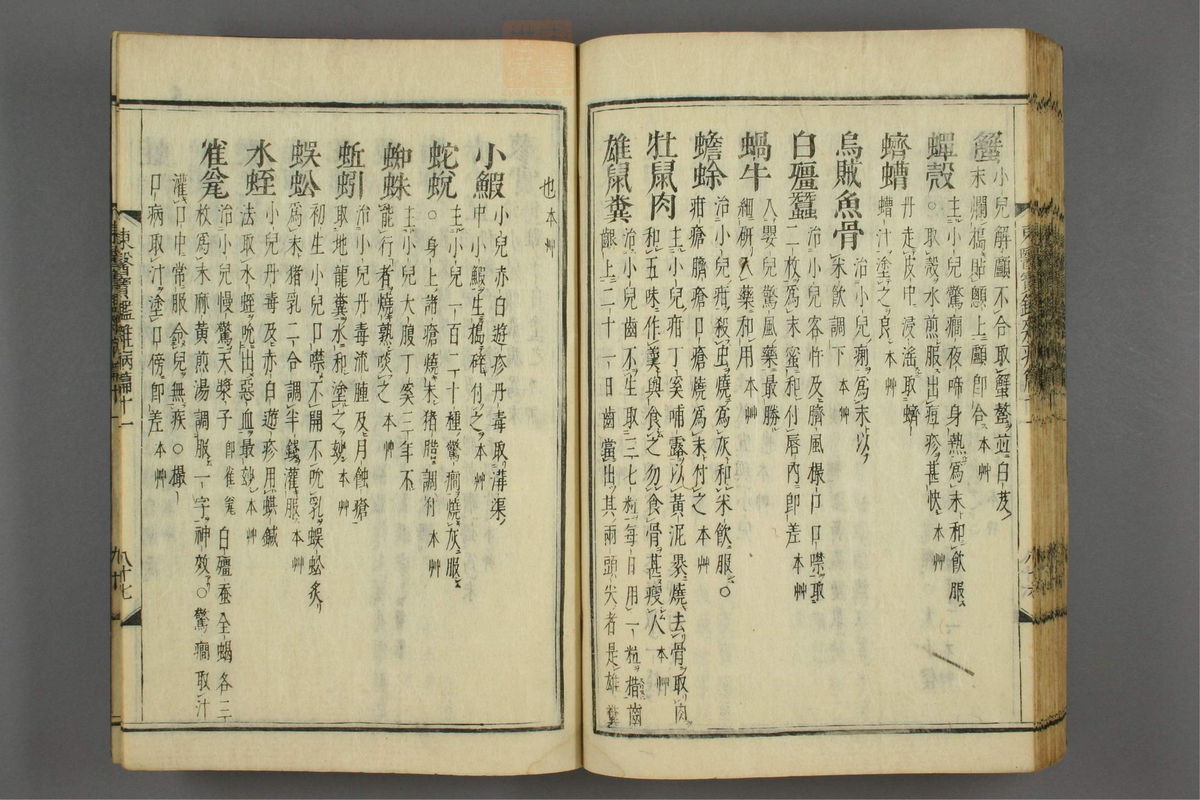 蟹 小兒解顱不合取蟹螯並白芨
末爛搗貼顱上顱即合 本艸
蟬殼 主小兒驚癎夜啼身熱爲末和飮服
○取殼水煎服出痘疹甚快 本艸
蠐螬 丹走皮中浸淫取蠐
螬汁塗之良 本艸
烏賊魚骨 治小兒痢爲末以
米飮調下 本艸
白殭蠶 治小兒客忤及臍風撮口口噤取
二枚爲末蜜和付唇內即差 本艸
蝸牛 入嬰兒驚風藥最勝
細硏入藥和用 本艸
蟾蜍 治小兒疳殺虫燒爲灰和米飮服○
疳瘡臍瘡口瘡燒爲末付之 本艸
牡鼠肉 主小兒疳丁奚哺露以黃泥褁燒去骨取肉
和五味作羹與食之勿食骨甚瘦人 本艸
雄鼠糞 治小兒齒不生取三七粒每日用一粒揩齒
齦上二十一日齒當出其兩頭尖者是雄糞
也 本艸
小鰕 小兒赤白遊疹丹毒取溝渠
中小鰕生搗碎付之 本艸
蛇蛻 主小兒一百二十種驚癎燒灰服
○身上諸瘡燒末猪脂調付 本艸
蜘蛛 主小兒大腹丁奚三年不
能行者燒熟啖之 本艸
蚯蚓 治小兒丹毒流腫及月蝕瘡
取地龍糞水和塗之妙 本艸
蜈蚣 初生小兒口噤不開不吮乳蜈蚣炙
爲末猪乳二合調半錢灌服 本艸
水蛭 小兒丹毒及赤白遊疹用蜞鍼
法取水蛭吮出惡血最妙 本艸
雀甕 治小兒慢驚天漿子 即雀甕 白殭蚕全蝎各三
枚爲末麻黃煎湯調服一字神效○驚癎取汁
灌口中常服令兒無疾○撮
口病取汁塗口傍即差 本艸
東醫寶鑑雜病篇十一
八十七